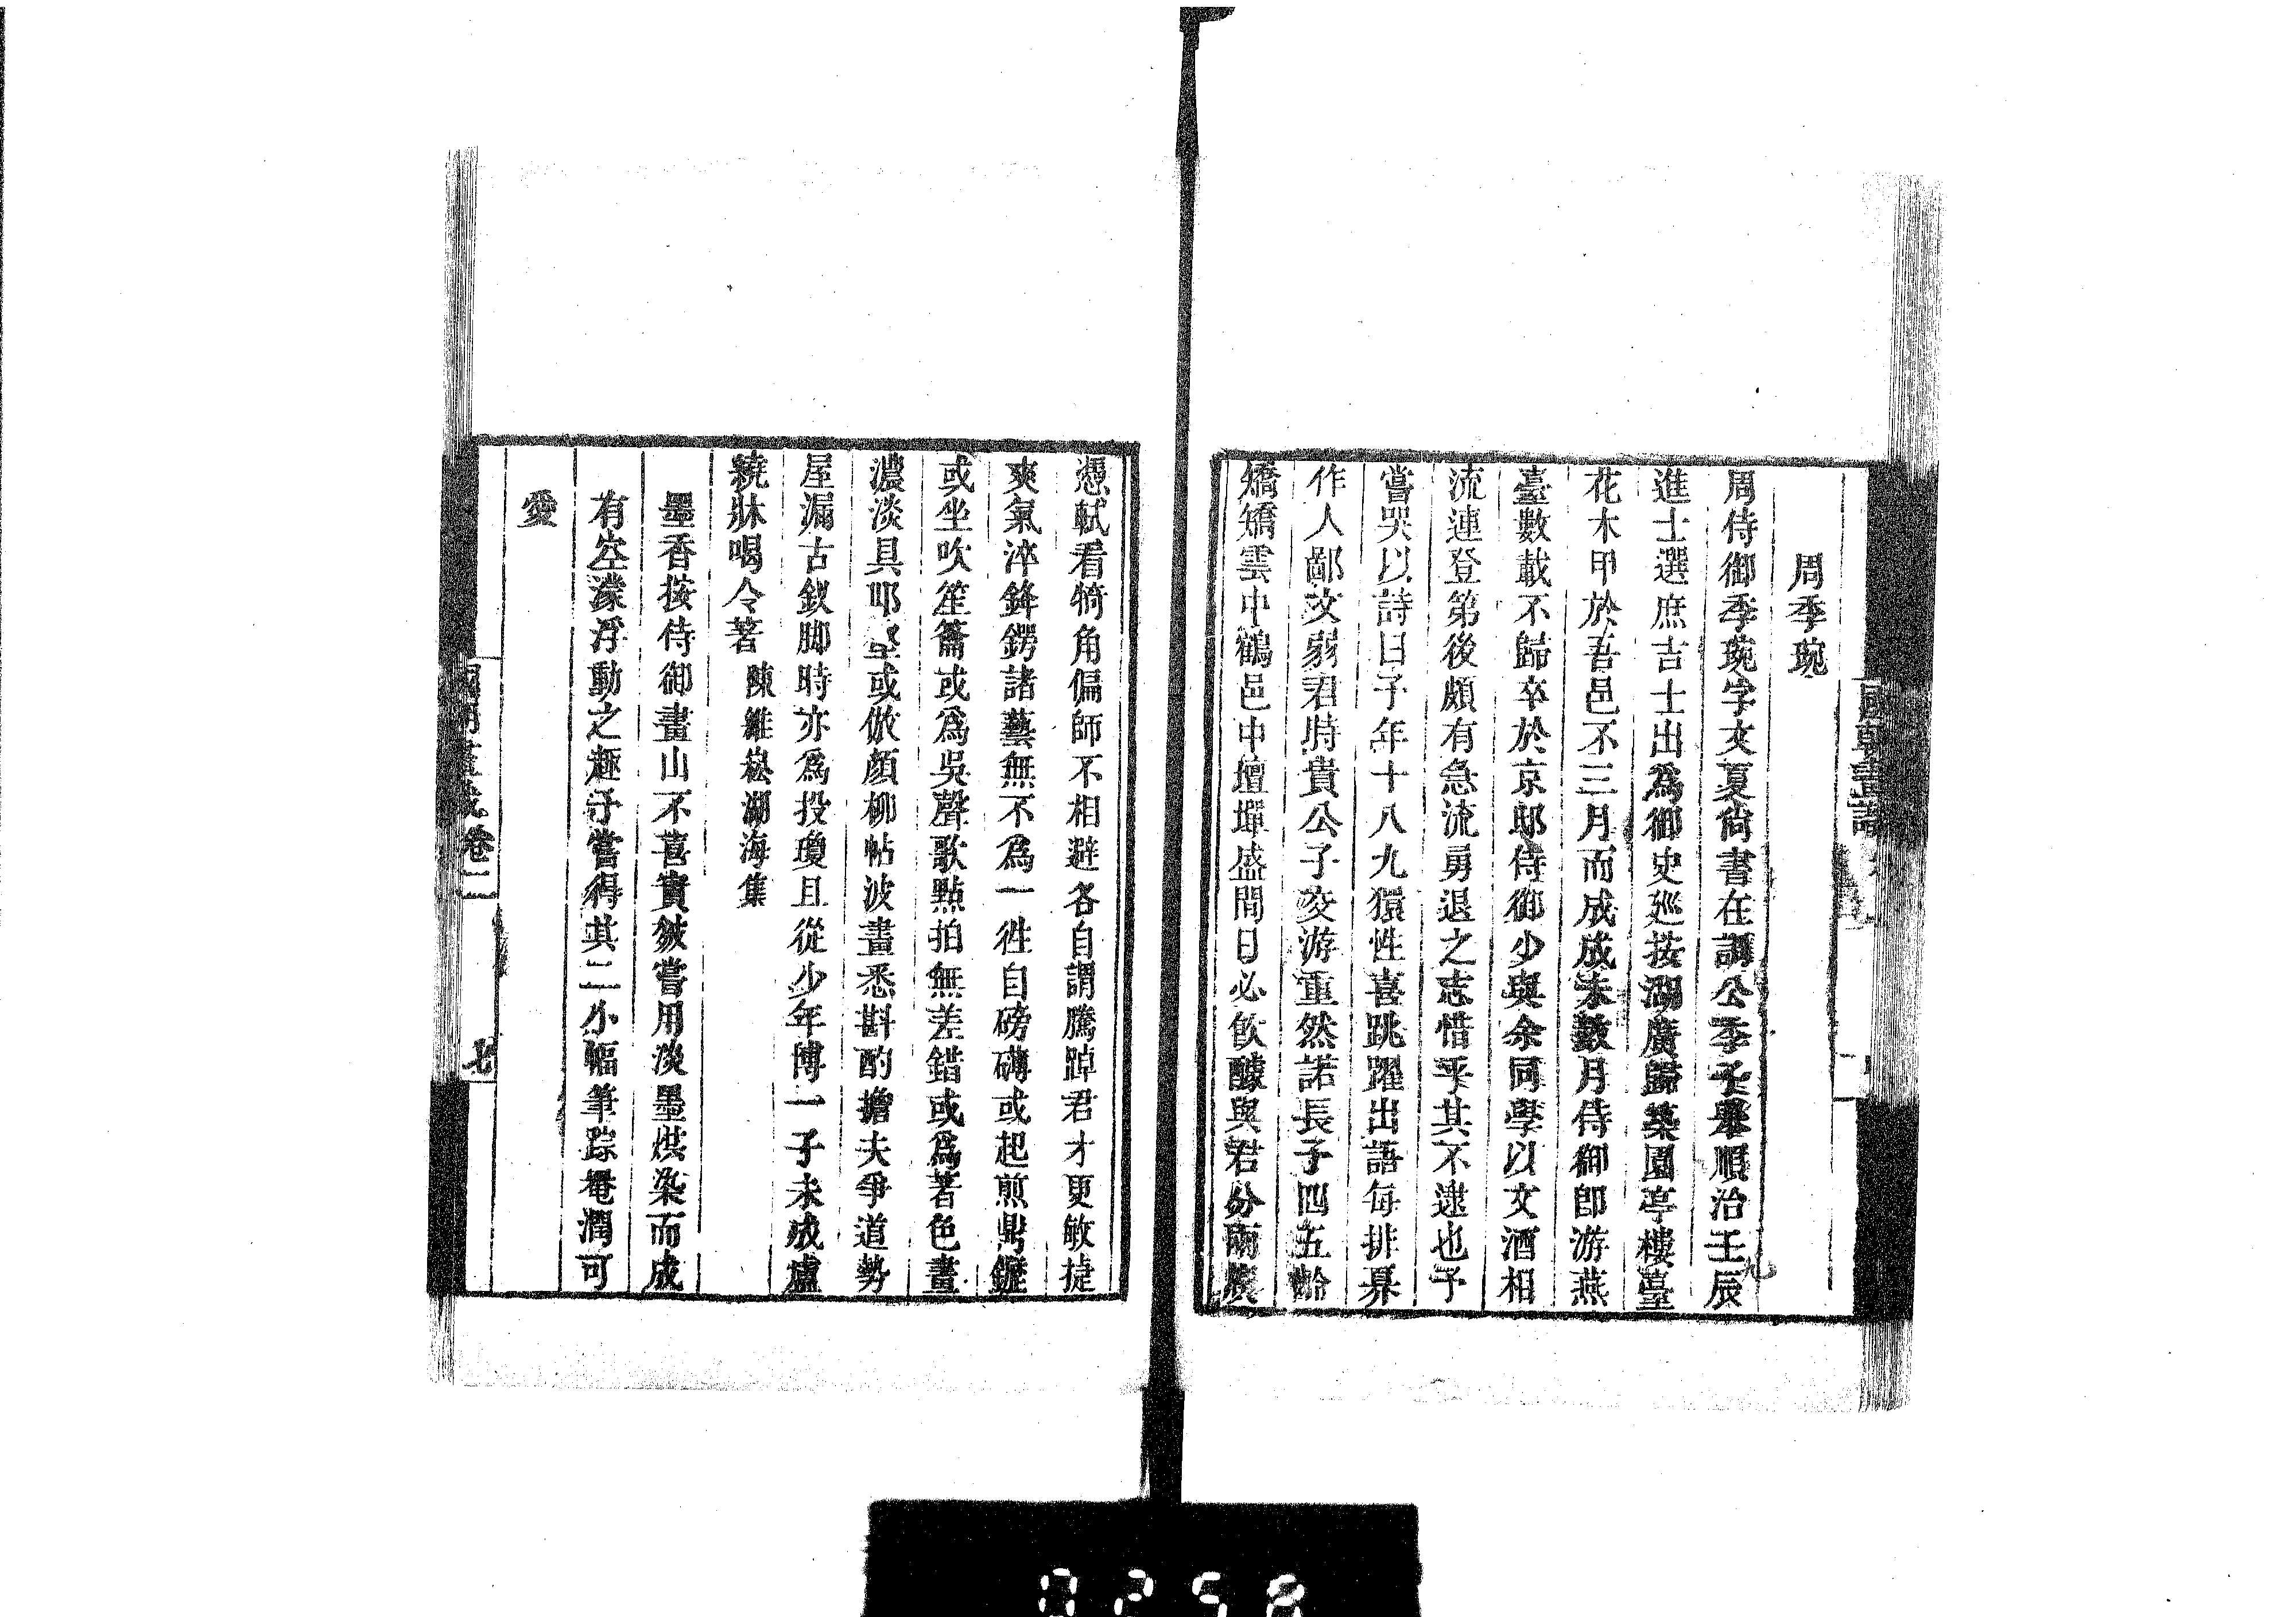 周季琬
周侍御季琬字文夏尚書在調公季子舉順治壬辰
進士選庶吉士出爲御史廵按湖廣歸築園亭樓臺
花木甲於吾邑不三月而成成未數月侍御卽游燕
臺數載不歸卒於京邸侍御少與余同學以文酒相
流連登第後頗有急流勇退之志惜乎其不逮也予
嘗哭以詩曰予年十八九獧性喜跳躍出語每排奡
作人鄙汶弱君時貴公子交游重然諾長予四五齡
矯矯雲中鶴邑中壇墠盛間日必飲醵與君分兩
憑軾看犄角偏師不相避各自謂騰踔君才更敏捷
爽氣淬鋒鍔諸藝無不爲一徃自磅礴或起煎鼎鐺
或坐吹笙籥或爲吳聲歌點拍無差錯或爲著色畫
濃淡具邱壑或倣顏柳帖波畫悉斟酌擔夫爭道勢
屋漏古釵脚時亦爲投瓊且從少年博一子未成盧
繞牀喝令著 陳維崧湖海集
墨香按侍御畫山不喜實皴嘗用淡墨烘染而成
有空濛浮動之趣予嘗得其二小幅筆踪墨潤可
愛
國朝畫識卷二
七
0258